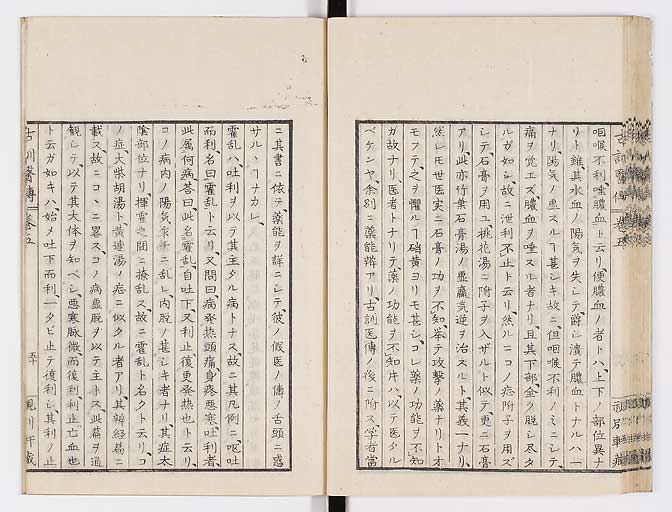 咽喉不利唾膿血上云リ便膿血ノ者トハ上下ノ部位異ナ
リト雖其水血ノ陽気ヲ失シテ欝シ潰テ膿血トナルハ一
ナリ陽気ノ虚スルヿ甚シキ故ニ但咽喉不利ノミニシテ
痛ヲ覚エズ膿血ヲ唾スル者ナリ且其下部全ク脱シ尽タ
ルガ如シ故ニ泄利不止ト云リ然ルニコノ症附子ヲ用ズ
シテ石膏ヲ用ユ桃花湯ニ附子ヲ入ザルト似テ更ニ石膏
アリ此亦竹葉石膏湯ノ虚羸気逆ヲ治スルト其義一ナリ
然レモ世医実ニ石膏ノ功ヲ不知挙テ攻撃ノ薬ナリトオ
モフテ之ヲ懼ルヿ硝黄ヨリモ甚シコレ薬ノ功能ヲ不知
ガ故ナリ医者トナリテ薬ノ功能ヲ不知片ハ以テ医タル
ベケンヤ余別ニ薬能辨アリ古訓医傳ノ後ニ附ス学者當
ニ其書ニ依テ薬能ヲ詳ニシテ彼ノ假医ノ儔ノ舌頭ニ惑
サルヽヿナカレ
霍乱ハ吐利ヲ以テ其主タル病トナス故ニ其凡例ニ嘔吐
而利名曰霍乱ト云リ又問曰病発熱頭痛身疼悪寒吐利者
此属何病答曰此名霍乱自吐下又利止復更発熱也ト云リ
コノ病内ノ陽気
陰部位ナリ揮霍之間ニ撩乱ス故ニ霍乱ト名クト云リコ
ノ症大柴胡湯ト黄連湯ノ症ニ似タル者アリ其辨経篇ニ
載ス故ニコヽニ畧スコノ病虚脱ヲ以テ主トス此篇ヲ通
観シテ以テ其大体ヲ知ベシ悪寒脉微而復利利止亡血也
ト云ガ如キハ始メ吐下而利一タビ止テ復利シ其利ノ止
古訓醫傳 卷五
五十